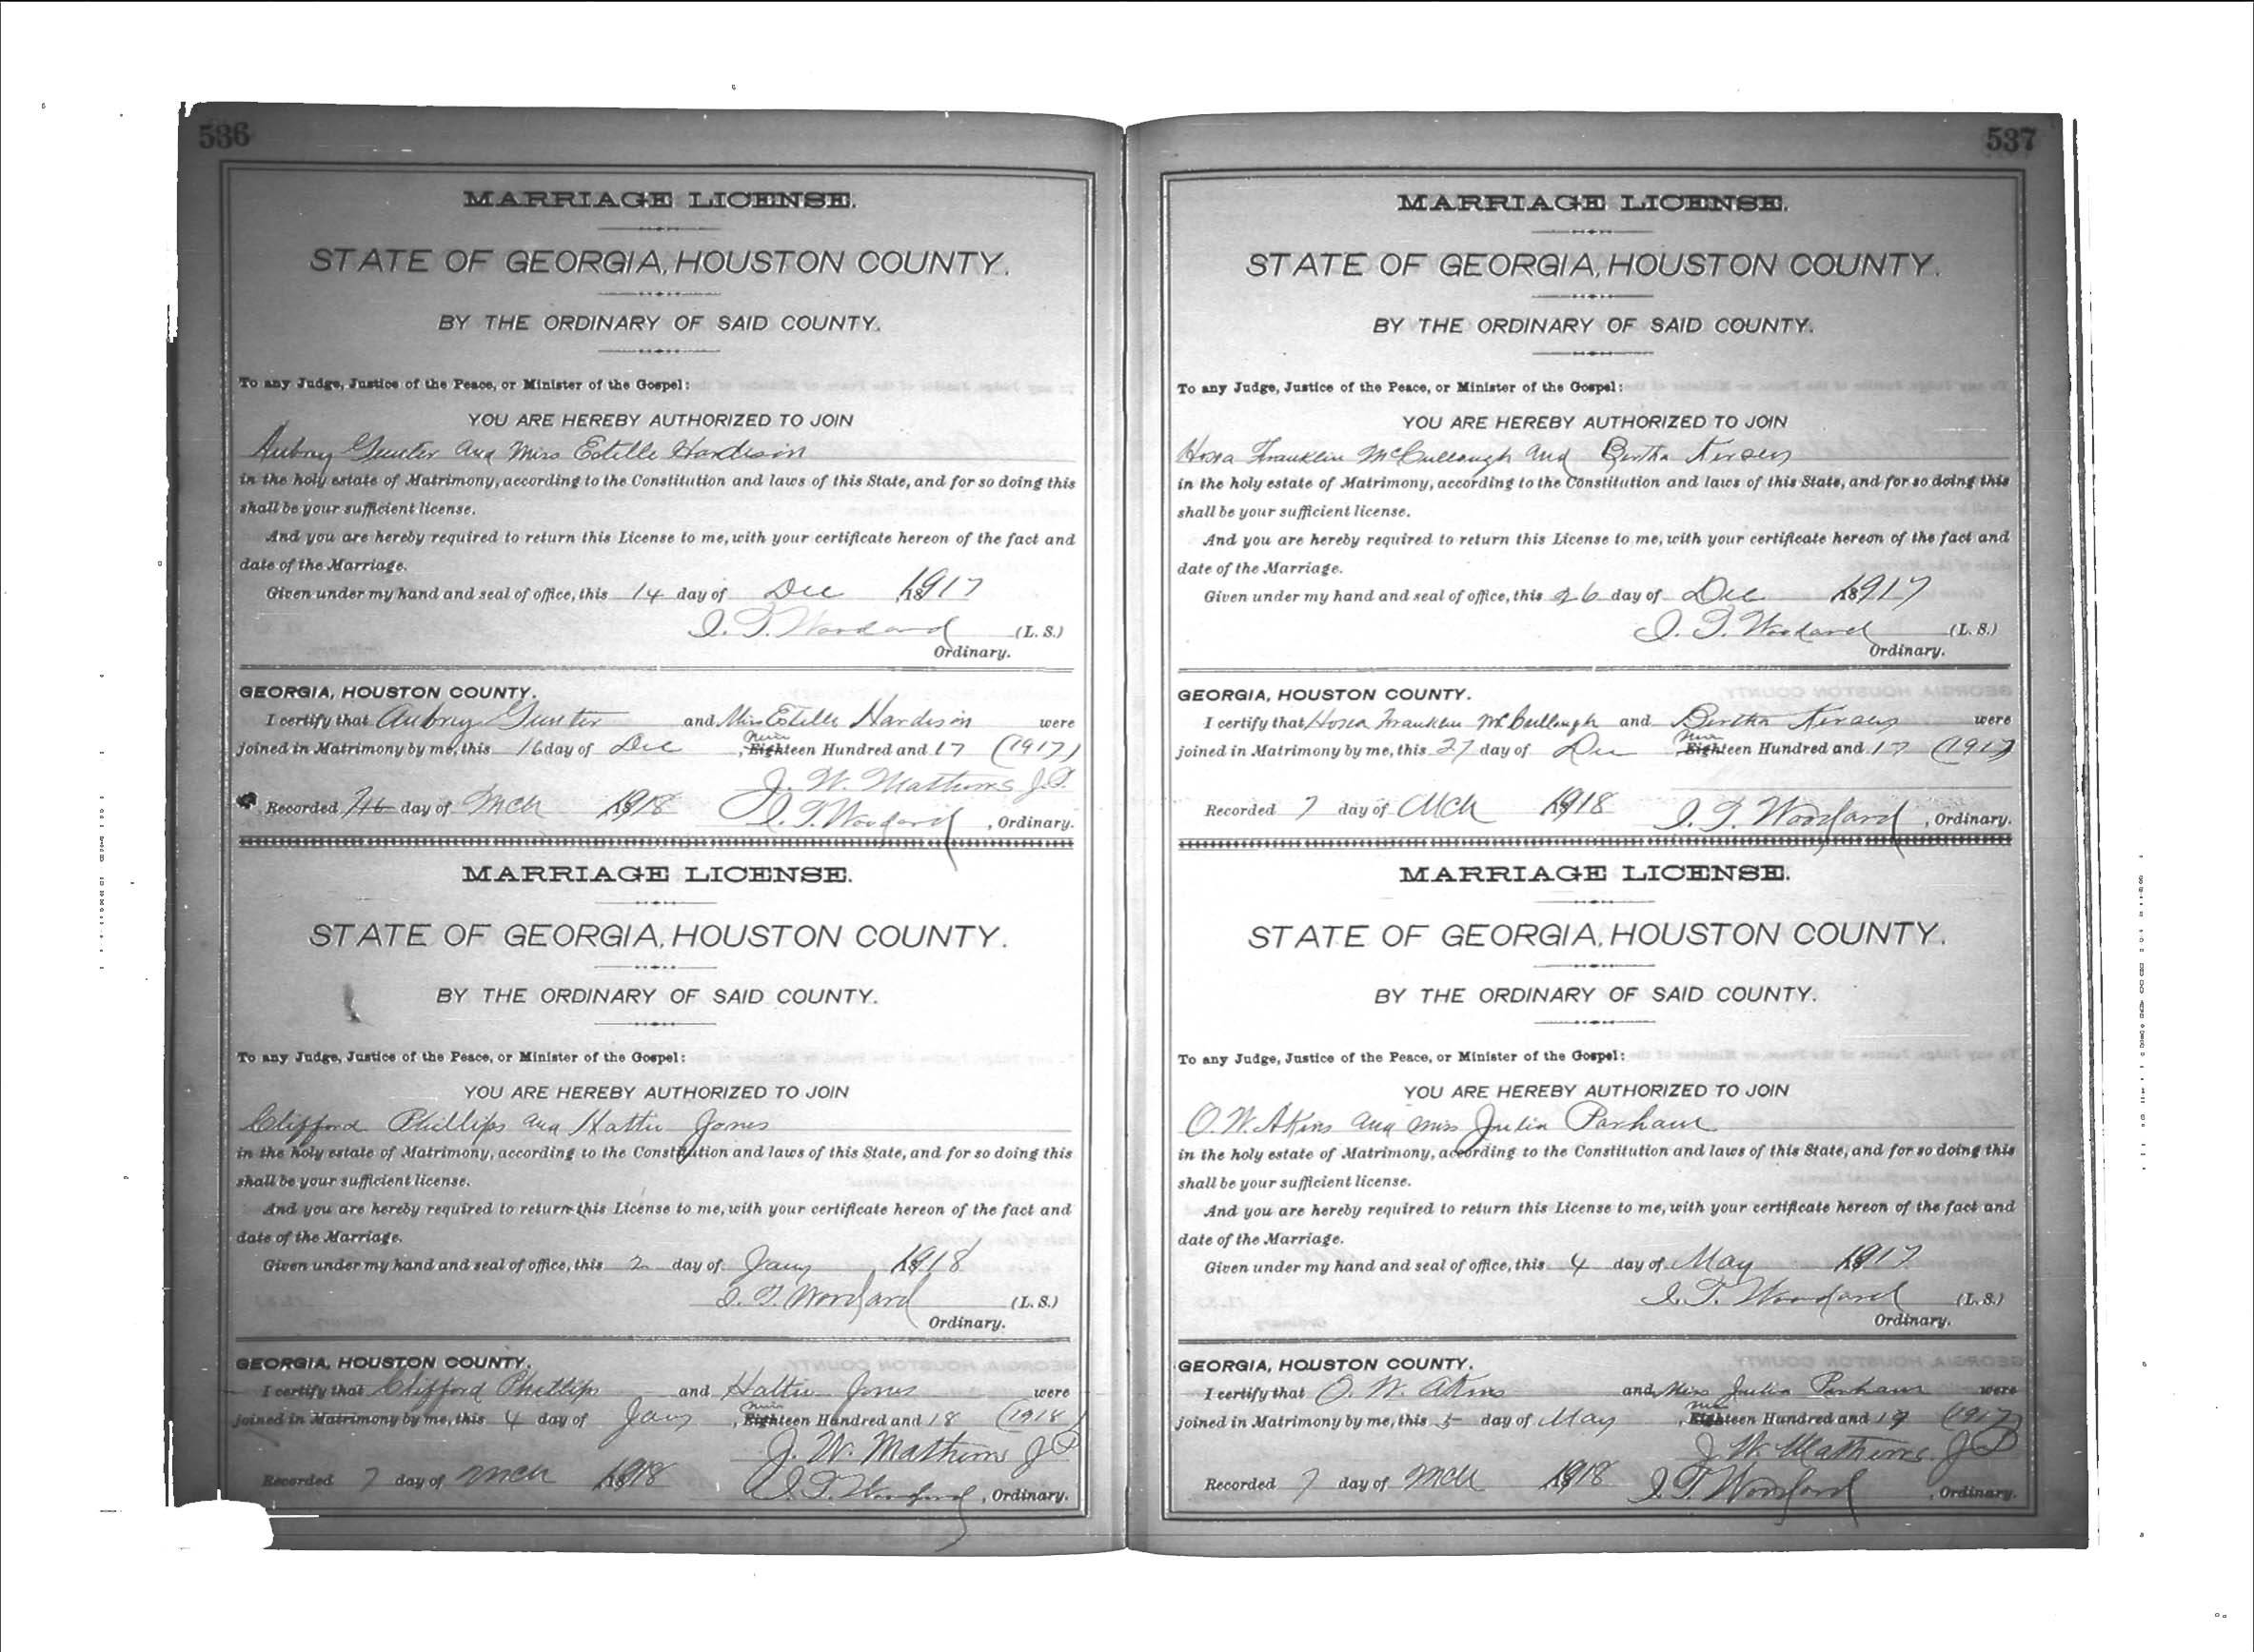 536
MARRIAGE LICENSE.
STATE OF GEORGIA, HOUSTON COUNTY.
BY THE ORDINARY OF SAID COUNTY.
To any Judge, Justice of the Peace, or Minister of the Gospel:
YOU ARE HEREBY AUTHORIZED TO JOIN
Aubrey Gunter and Miss Estelle Hardison
in the holy estate of Matrimony, according to the Constitution and laws of this State, and for so doing this
shall be your sufficient license.
And you are hereby required to return this License to me, with your certificate hereon of the fact and
date of the Marriage.
Given under my hand and seal of office, this 14 day of Dec 1917
I. T. Woodard (L. S.)
Ordinary.
GEORGIA, HOUSTON COUNTY.
I certify that Aubrey Gunter and Miss Estelle Hardison were
joined in Matrimony by me, this 16 day of Dec, Nineteen Hundred and 17 (1917)
J. W. Mathews J.P.
Recorded day of Mch 1918 I. T. Woodard, Ordinary.
MARRIAGE LICENSE.
STATE OF GEORGIA, HOUSTON COUNTY.
BY THE ORDINARY OF SAID COUNTY.
To any Judge, Justice of the Peace, or Minister of the Gospel:
YOU ARE HEREBY AUTHORIZED TO JOIN
Clifford Phillips and Hattie Jones
in the holy estate of Matrimony, according to the Constitution and laws of this State, and for so doing this
shall be your sufficient license.
And you are hereby required to return this License to me, with your certificate hereon of the fact and
date of the Marriage.
Given under my hand and seal of office, this 2 day of Jany 1918
I. T. Woodard (L. S.)
Ordinary.
GEORGIA, HOUSTON COUNTY.
I certify that Clifford Phillips and Hattie Jones were
joined in Matrimony by me, this 4 day of Jany, Nineteen Hundred and 18 (1918)
J. W. Mathews JP
Recorded 7 day of Mch 1918 I. T. Woodard, Ordinary.
537
MARRIAGE LICENSE.
STATE OF GEORGIA, HOUSTON COUNTY.
BY THE ORDINARY OF SAID COUNTY.
To any Judge, Justice of the Peace, or Minister of the Gospel:
YOU ARE HEREBY AUTHORIZED TO JOIN
Hosea Franklin McCullough and Bertha Kersey
in the holy estate of Matrimony, according to the Constitution and laws of this State, and for so doing this
shall be your sufficient license.
And you are hereby required to return this License to me, with your certificate hereon of the fact and
date of the Marriage.
Given under my hand and seal of office, this 26 day of Dec 1917
I. T. Woodard (L. S.)
Ordinary.
GEORGIA, HOUSTON COUNTY.
I certify that Hosea Franklin McCullough and Bertha Kersey were
joined in Matrimony by me, this 27 day of Dec, Nineteen Hundred and 17 (1917)
Recorded 7 day of Mch 1918 I. T. Woodard, Ordinary.
MARRIAGE LICENSE.
STATE OF GEORGIA, HOUSTON COUNTY.
BY THE ORDINARY OF SAID COUNTY.
To any Judge, Justice of the Peace, or Minister of the Gospel:
YOU ARE HEREBY AUTHORIZED TO JOIN
O. W. Akins and Miss Julia Parham
in the holy estate of Matrimony, according to the Constitution and laws of this State, and for so doing this
shall be your sufficient license.
And you are hereby required to return this License to me, with your certificate hereon of the fact and
date of the Marriage.
Given under my hand and seal of office, this 4 day of May 1917
I. T. Woodard (L. S.)
Ordinary.
GEORGIA, HOUSTON COUNTY.
I certify that O. W. Akins and Miss Julia Parham were
joined in Matrimony by me, this 5 day of May, Nineteen Hundred and 17 (1917)
J. W. Mathews JP
Recorded 7 day of Mch 1918 I. T. Woodard, Ordinary.